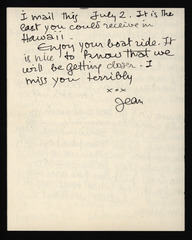 I mail this July 2. It is the
last you could receive in
Hawaii.
Enjoy your boat ride. It
is nice to know that we
will be getting closer. I
miss you terribly
xxx
Jean